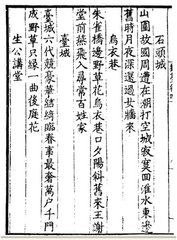 石頭城
山圍故國周遭在潮打空城寂寞回淮水東邊
舊時月夜深還過女牆來
烏衣巷
朱雀橋邊野草花烏衣巷口夕陽斜舊來王謝
堂前燕飛入尋常百姓家
臺城
臺城六代競豪華結綺臨春事最奢萬户千門
成野草只緣一曲後庭花
生公講堂